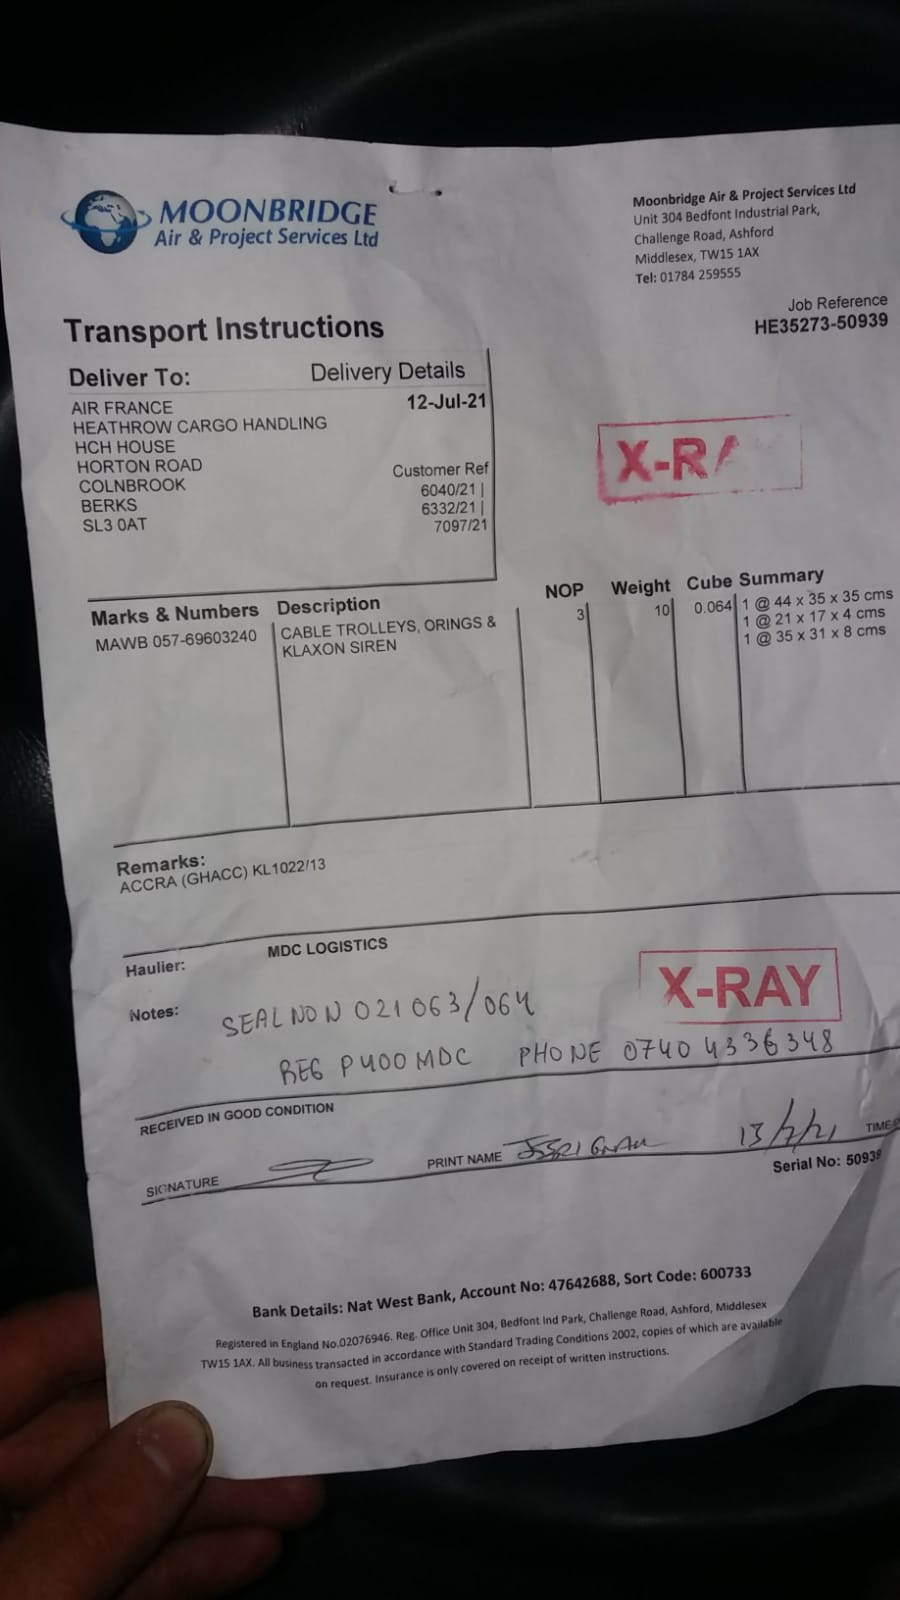 MOONBRIDGE
Air & Project Services Ltd
Moonbridge Air & Project Services Ltd
Unit 304 Bedfont Industrial Park,
Challenge Road, Ashford
Middlesex, TW15 1AX
Tel: 01784 259555
Job Reference
HE35273-50939
Transport Instructions
Deliver To: Delivery Details
AIR FRANCE 12-Jul-21
HEATHROW CARGO HANDLING
HCH HOUSE
HORTON ROAD
COLNBROOK
BERKS
SL3 0AT
Customer Ref
6040/21 |
6332/21 |
7097/21
X-RA
Marks & Numbers Description NOP Weight Cube Summary
MAWB 057-69603240 CABLE TROLLEYS, ORINGS & 3 10 0.064 1 @ 44 x 35 x 35 cms
KLAXON SIREN 1 @ 21 x 17 x 4 cms
1 @ 35 x 31 x 8 cms
Remarks:
ACCRA (GHACC) KL1022/13
Haulier: MDC LOGISTICS
X-RAY
Notes: SEAL NO N 021063/064
REG P400MDC PHONE 0740 4336348
RECEIVED IN GOOD CONDITION
SIGNATURE PRINT NAME 13/7/21 TIME
Serial No: 50939
Bank Details: Nat West Bank, Account No: 47642688, Sort Code: 600733
Registered in England No.02076946. Reg. Office Unit 304, Bedfont Ind Park, Challenge Road, Ashford, Middlesex
TW15 1AX. All business transacted in accordance with Standard Trading Conditions 2002, copies of which are available
on request. Insurance is only covered on receipt of written instructions.